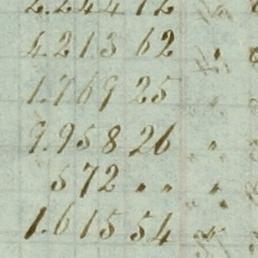 2.244 12
4.213 62
1.769 25
9.958 26 "
572 " " "
1.615 54 "